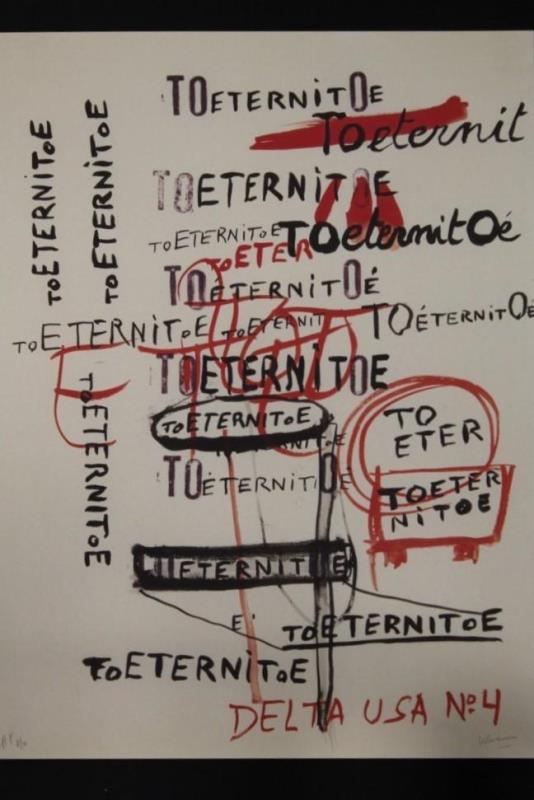 TOETERNITOE
TOeternit
TOETERNITOE
TOETERNITOE
TOETERNITOE
TOETERNITOE
TOeternitOé
TOETER
TOÉTERNITOÉ
TOETERNITOE
TOETERNIT
TOÉTERNITOÉ
TOETERNITOE
TOETERNITOE
TOETERNITOE
TO
ETER
TOETER
NITOE
TOETERNITOE
TOÉTERNITOÉ
TOETERNITOE
E'
TOETERNITOE
TOETERNITOE
DELTA USA Nº4